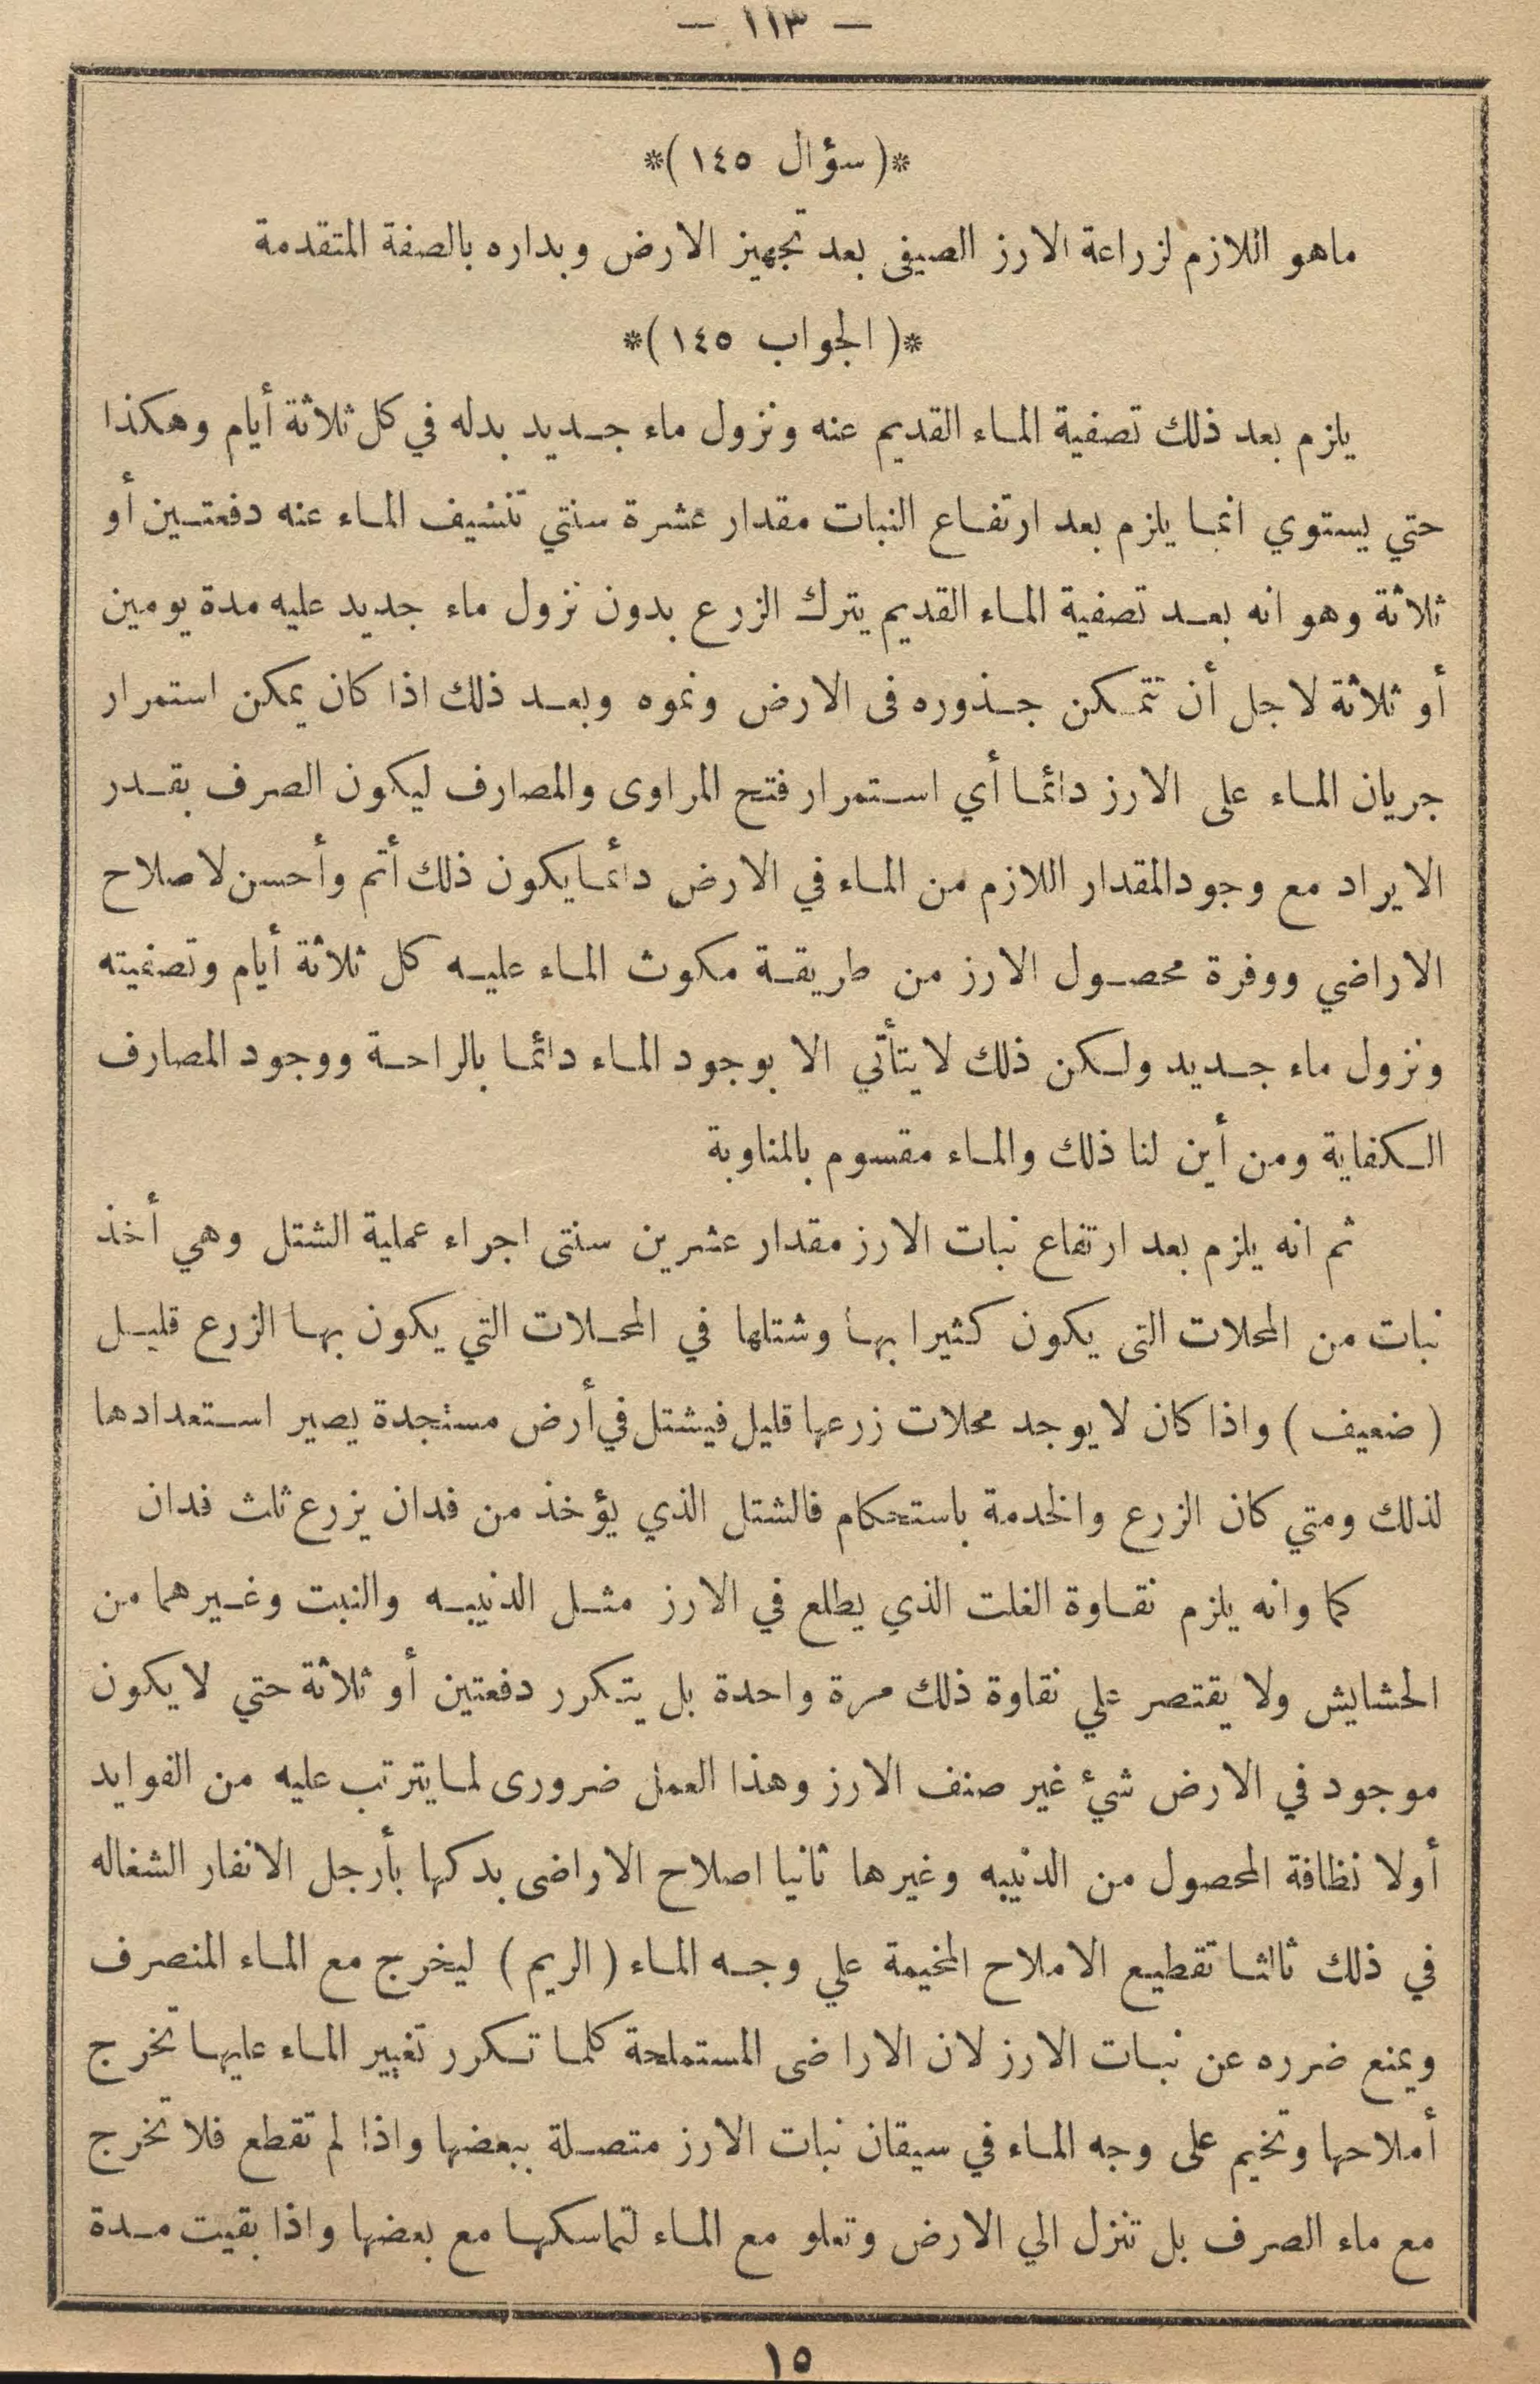 — ١١٣ —
*( سؤال ١٤٥ )*
ماهو اللازم لزراعة الارز الصيفى بعد تجهيز الارض وبداره بالصفة المتقدمة
*( الجواب ١٤٥ )*
يلزم بعد ذلك تصفية الماء القديم عنه ونزول ماء جديد بدله في كل ثلاثة أيام وهكذا
حتي يستوي انما يلزم بعد ارتفاع النبات مقدار عشرة سنتي تنشيف الماء عنه دفعتين أو
ثلاثة وهو انه بعد تصفية الماء القديم يترك الزرع بدون نزول ماء جديد عليه مدة يومين
أو ثلاثة لاجل أن تتمكن جذوره فى الارض ونموه وبعد ذلك اذا كان يمكن استمرار
جريان الماء على الارز دائما أي استمرار فتح المراوى والمصارف ليكون الصرف بقدر
الايراد مع وجود المقدار اللازم من الماء في الارض دائما يكون ذلك أتم وأحسن لاصلاح
الاراضي ووفرة محصول الارز من طريقة مكوث الماء عليه كل ثلاثة أيام وتصفيته
ونزول ماء جديد ولكن ذلك لا يتأتي الا بوجود الماء دائما بالراحة ووجود المصارف
الكفاية ومن أين لنا ذلك والماء مقسوم بالمناوبة
ثم انه يلزم بعد ارتفاع نبات الارز مقدار عشرين سنتى اجراء عملية الشتل وهي أخذ
نبات من المحلات التى يكون كثيرا بها وشتلها في المحلات التي يكون بها الزرع قليل
( ضعيف ) واذا كان لا يوجد محلات زرعها قليل فيشتل في أرض مستجدة يصير استعدادها
لذلك ومتي كان الزرع والخدمة باستحكام فالشتل الذي يؤخذ من فدان يزرع ثلث فدان
كما وانه يلزم نقاوة الغلت الذي يطلع في الارز مثل الدنيبه والنبت وغيرهما من
الحشايش ولا يقتصر علي نقاوة ذلك مرة واحدة بل يتكرر دفعتين أو ثلاثة حتي لا يكون
موجود في الارض شيء غير صنف الارز وهذا العمل ضرورى لما يترتب عليه من الفوايد
أولا نظافة المحصول من الدنيبه وغيرها ثانيا اصلاح الاراضى بدكها بأرجل الانفار الشغاله
في ذلك ثالثا تقطيع الاملاح المخيمة علي وجه الماء ( الريم ) ليخرج مع الماء المنصرف
ويمنع ضرره عن نبات الارز لان الاراضى المستملحة كلما تكرر تغيير الماء عليها تخرج
أملاحها وتخيم على وجه الماء في سيقان نبات الارز متصلة ببعضها واذا لم تقطع فلا تخرج
مع ماء الصرف بل تنزل الي الارض وتعلو مع الماء لتماسكها مع بعضها واذا بقيت مدة
١٥